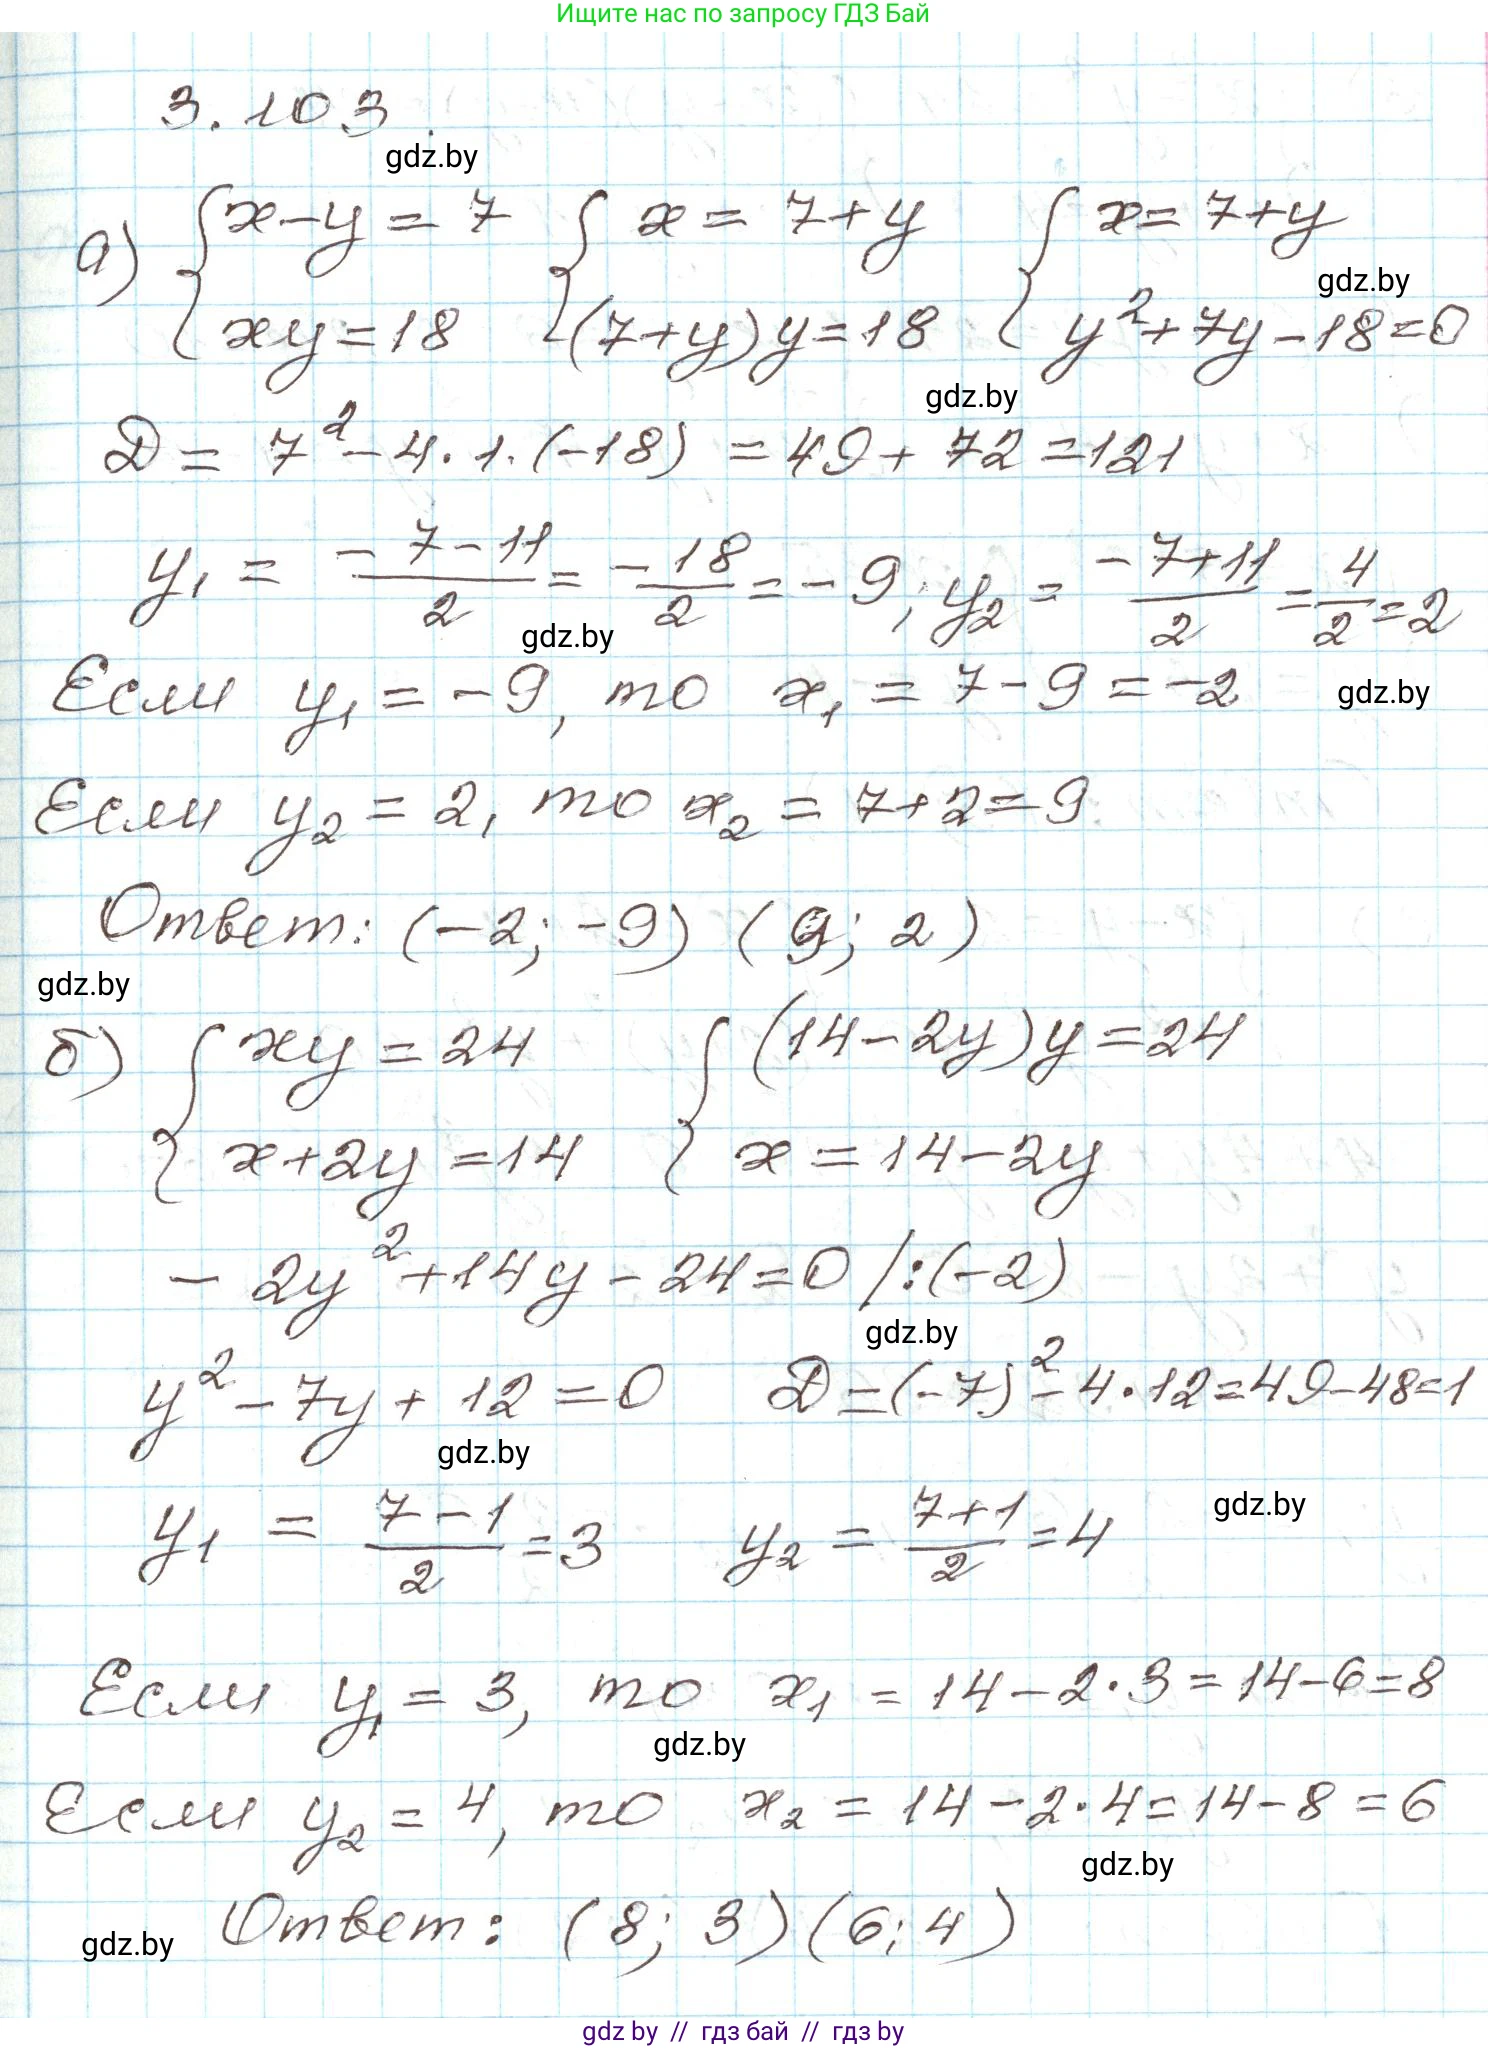 Ищите нас по запросу ГДЗ Бай
3.103.
gdz.by
а) { x-y=7 { x=7+y { x=7+y
gdz.by
xy=18 (7+y)y=18 y²+7y-18=0
gdz.by
Д = 7²-4·1·(-18) = 49+72=121
y₁ = (-7-11)/2 = -18/2 = -9; y₂ = (-7+11)/2 = 4/2 = 2
gdz.by
Если y₁ = -9, то x₁ = 7-9 = -2
gdz.by
Если y₂ = 2, то x₂ = 7+2=9
Ответ: (-2; -9) (9; 2)
gdz.by
б) { xy=24 { (14-2y)y=24
x+2y=14 x=14-2y
-2y²+14y-24=0 /:(-2)
gdz.by
y²-7y+12=0 Д=(-7)²-4·12=49-48=1
gdz.by
y₁ = (7-1)/2 = 3 y₂ = (7+1)/2 = 4
gdz.by
Если y₁ = 3, то x₁ = 14-2·3=14-6=8
gdz.by
Если y₂ = 4, то x₂ = 14-2·4=14-8=6
gdz.by
Ответ: (8; 3) (6; 4)
gdz.by
gdz by // гдз бай // гдз by